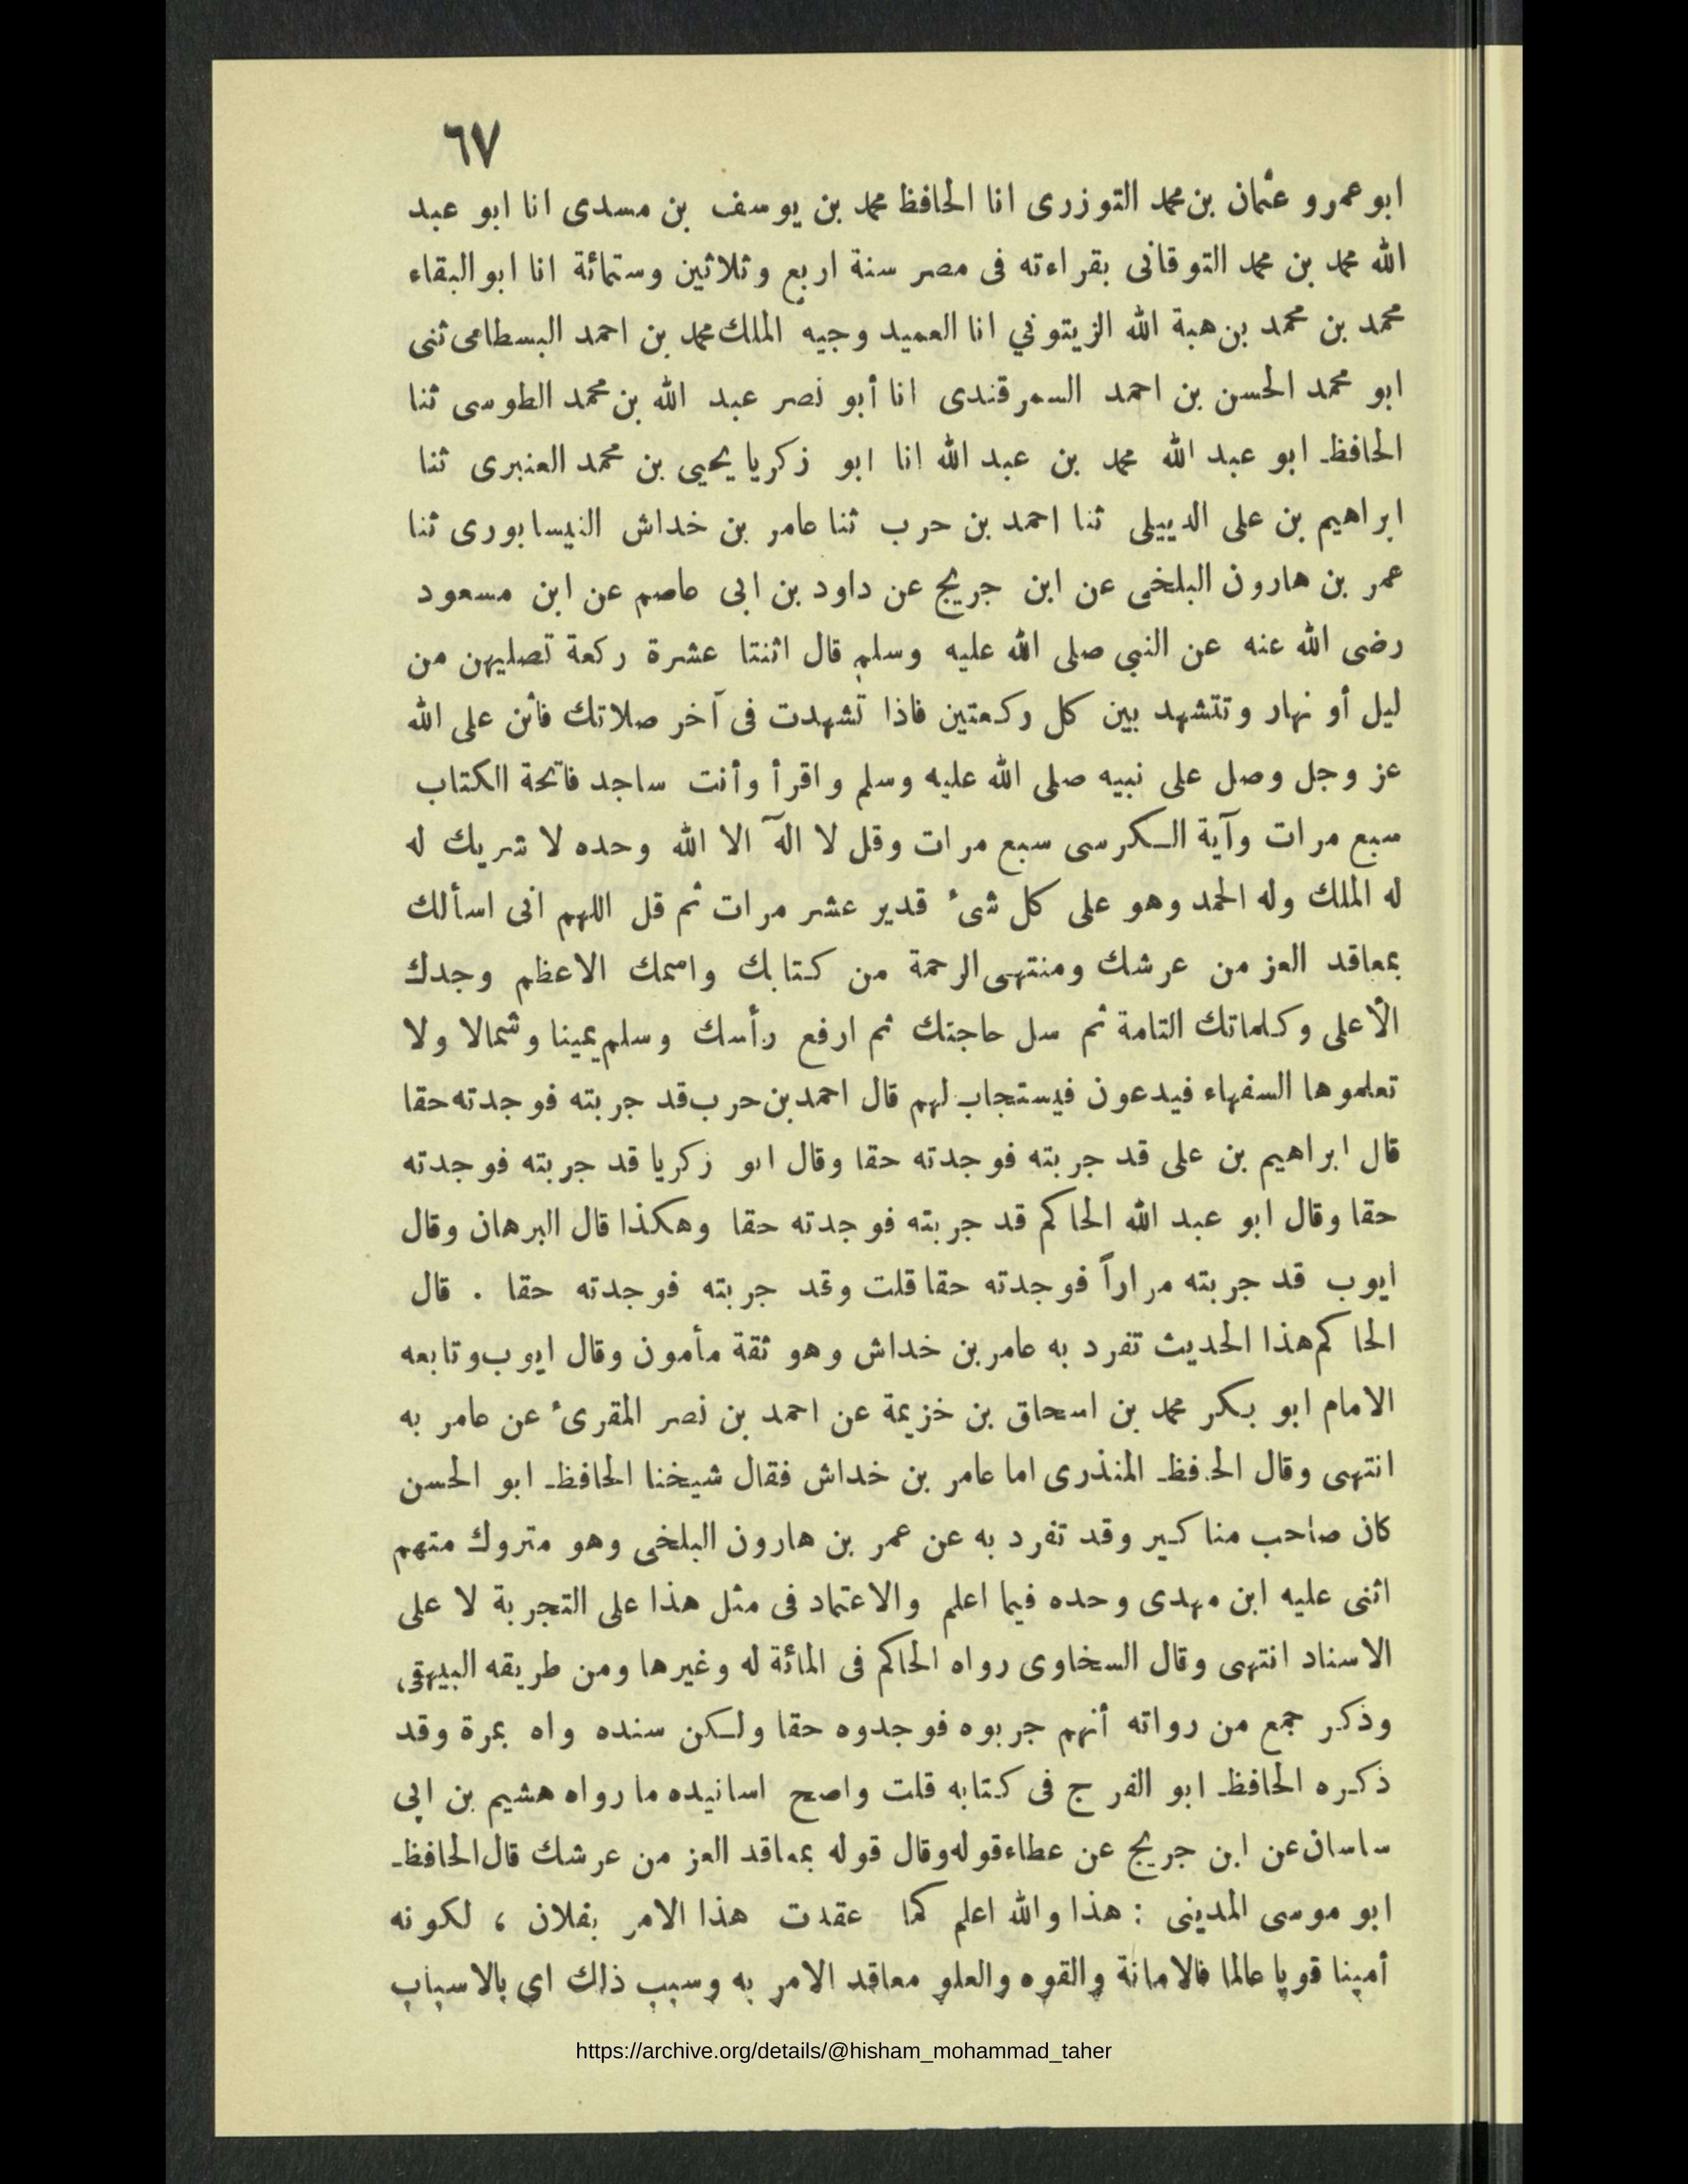 ٦٧
ابو عمرو عثمان بن محمد التوزرى انا الحافظ محمد بن يوسف بن مسدى انا ابو عبد
الله محمد بن محمد التوقانى بقراءته فى مصر سنة اربع وثلاثين وستمائة انا ابو البقاء
محمد بن محمد بن هبة الله الزيتوني انا العميد وجيه الملك محمد بن احمد البسطامى ثنى
ابو محمد الحسن بن احمد السمرقندى انا أبو نصر عبد الله بن محمد الطوسى ثنا
الحافظ ابو عبد الله محمد بن عبد الله انا ابو زكريا يحيى بن محمد العنبرى ثنا
ابراهيم بن على الدييلى ثنا احمد بن حرب ثنا عامر بن خداش النيسابورى ثنا
عمر بن هارون البلخى عن ابن جريج عن داود بن ابى عاصم عن ابن مسعود
رضى الله عنه عن النبى صلى الله عليه وسلم قال اثنتا عشرة ركعة تصليهن من
ليل أو نهار وتتشهد بين كل ركعتين فاذا تشهدت فى آخر صلاتك فأثن على الله
عز وجل وصل على نبيه صلى الله عليه وسلم واقرأ وأنت ساجد فاتحة الكتاب
سبع مرات وآية الكرسى سبع مرات وقل لا اله الا الله وحده لا شريك له
له الملك وله الحمد وهو على كل شىء قدير عشر مرات ثم قل اللهم انى اسألك
بمعاقد العز من عرشك ومنتهى الرحمة من كتابك واسمك الاعظم وجدك
الأعلى وكلماتك التامة ثم سل حاجتك ثم ارفع رأسك وسلم يمينا وشمالا ولا
تعلموها السفهاء فيدعون فيستجاب لهم قال احمد بن حرب قد جربته فوجدته حقا
قال ابراهيم بن على قد جربته فوجدته حقا وقال ابو زكريا قد جربته فوجدته
حقا وقال ابو عبد الله الحاكم قد جربته فوجدته حقا وهكذا قال البرهان وقال
ايوب قد جربته مراراً فوجدته حقا قلت وقد جربته فوجدته حقا . قال
الحاكم هذا الحديث تفرد به عامر بن خداش وهو ثقة مأمون وقال ايوب وتابعه
الامام ابو بكر محمد بن اسحاق بن خزيمة عن احمد بن نصر المقرىء عن عامر به
انتهى وقال الحافظ المنذرى اما عامر بن خداش فقال شيخنا الحافظ ابو الحسن
كان صاحب مناكير وقد تفرد به عن عمر بن هارون البلخى وهو متروك متهم
اثنى عليه ابن مهدى وحده فيما اعلم والاعتماد فى مثل هذا على التجربة لا على
الاسناد انتهى وقال السخاوى رواه الحاكم فى المائة له وغيرها ومن طريقه البيهقى،
وذكر جمع من رواته أنهم جربوه فوجدوه حقا ولكن سنده واه بمرة وقد
ذكره الحافظ ابو الفرج فى كتابه قلت واصح اسانيده ما رواه هشيم بن ابى
ساسان عن ابن جريج عن عطاء قوله وقال قوله بمعاقد العز من عرشك قال الحافظ
ابو موسى المدينى : هذا والله اعلم كما عقدت هذا الامر بفلان ، لكونه
أمينا قويا عالما فالامانة والقوه والعلو معاقد الامر به وسبب ذلك اى بالاسباب
https://archive.org/details/@hisham_mohammad_taher